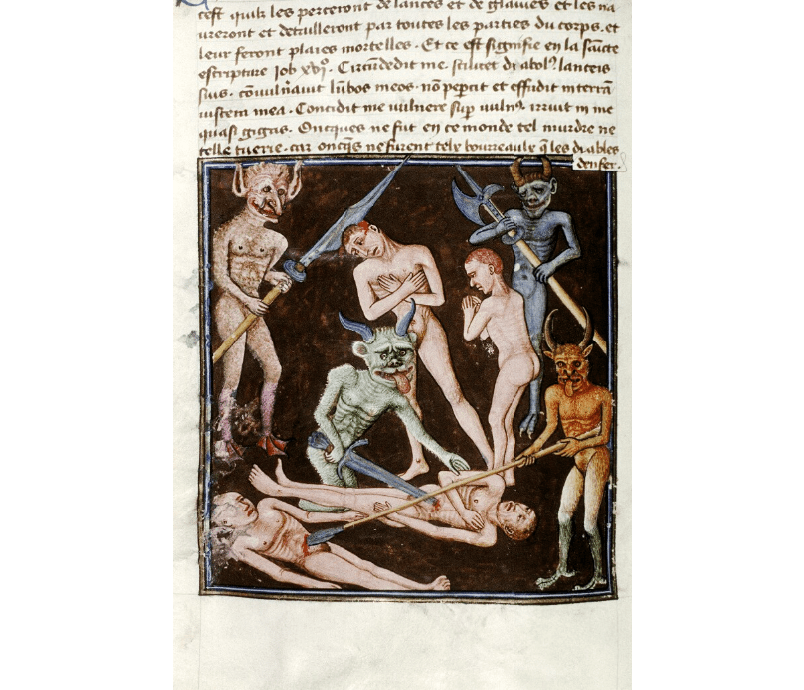 cest quilz les perceront de lances et de glaiues et les na
ureront et detrulleront par toutes les parties du corps. et
leur feront plaies mortelles. Et ce est signifie en la saīcte
escripture iob xvi°. Circūdedit me. scilicet dyabol⁹ lanceis
suis. cōuuln̄auit lūbos meos. nō pepcit et effudit in terrā
uiscera mea. Concidit me uulnere sup uuln⁹. irruit in me
quasi gigas. Oncques ne fut en ce monde tel murdre ne
telle tuerie. car oncq̄s ne furent telz bourreaulx q̄ les dyables
denfer.